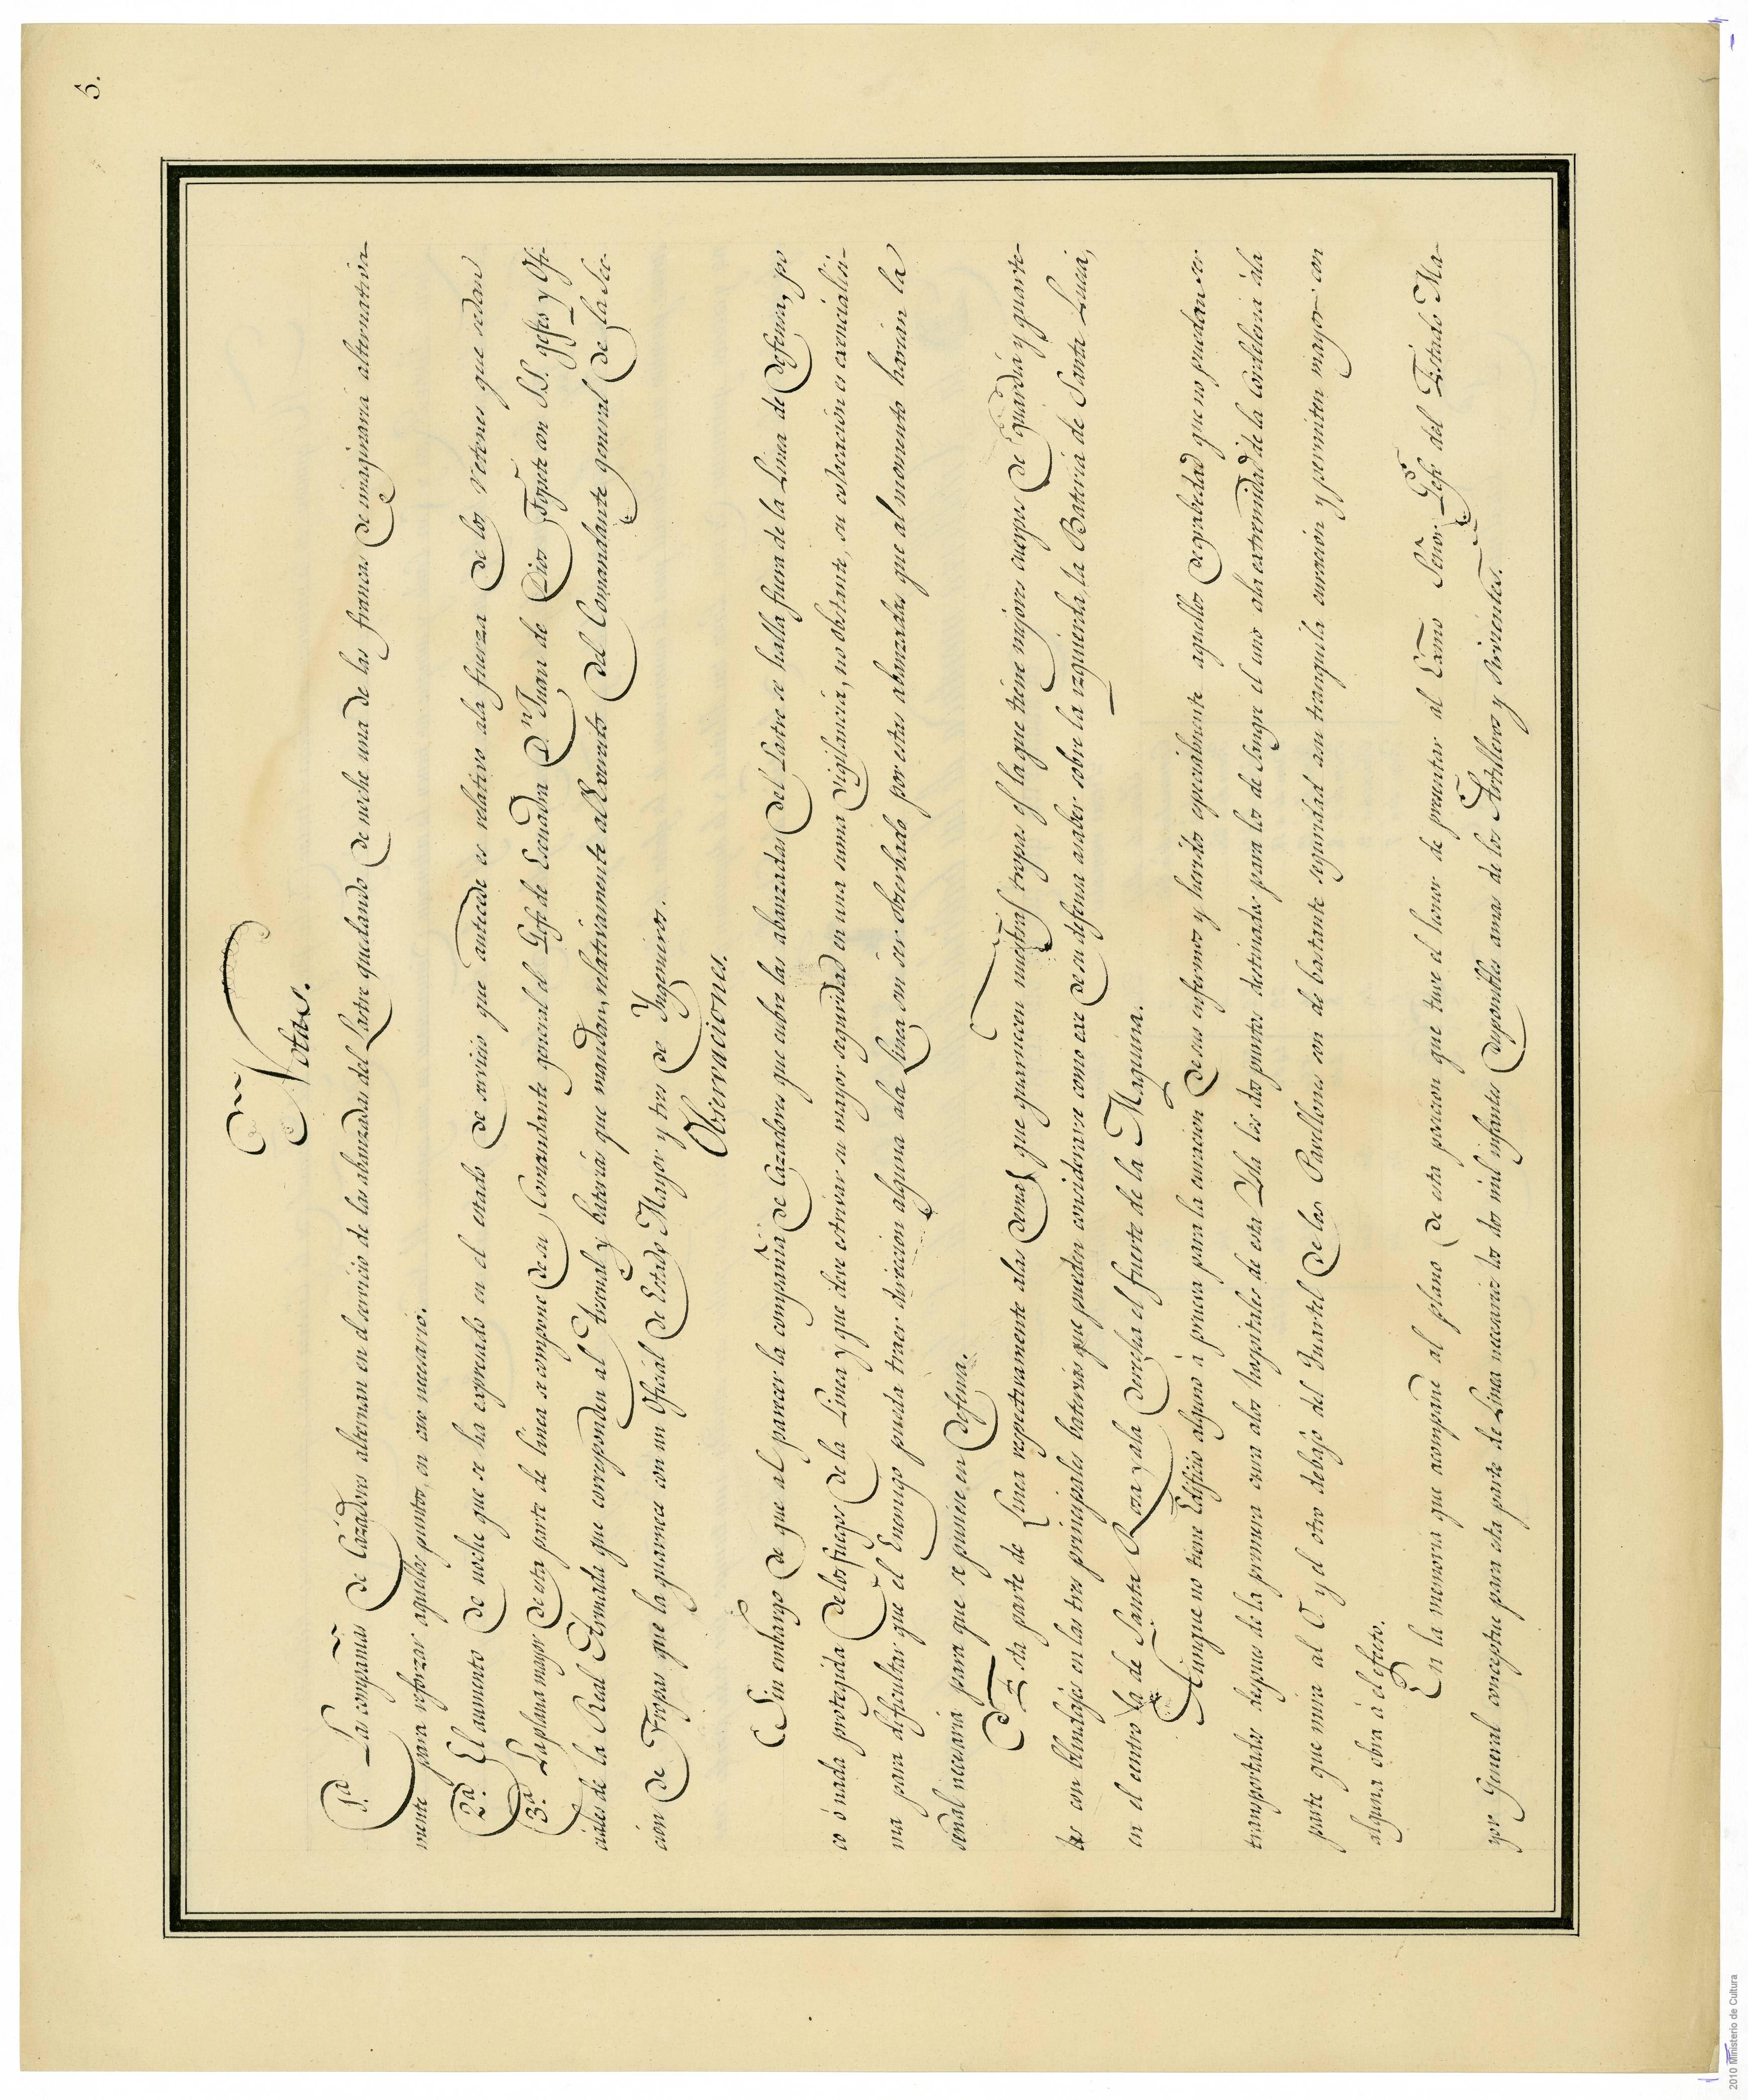 5.
Notas.
1.ª Las compañias de Cazadores alternan en el servicio de las abanzadas del Lastre quedando de noche una de las francas de imaginaria alternativa-
mente para reforzar aquellos puntos, en caso necesario.
2.ª El aumento de noche que se ha expresado en el estado de servicio que antecede es relativo ala fuerza de los retenes que sedan
3.ª La plana mayor de esta parte de linea se compone de su Comandante general el Gefe de Escuadra D.n Juan de Dios Topete con S.S. gefes y Ofi-
ciales de la Real Armada que corresponden al Arsenal y baterias que mandan, relativamente al Exercito del Comandante general de la Sec-
cion de Tropas que la guarnece con un Oficial de Estado Mayor y tres de Yngenieros.
Observaciones.
Sin embargo de que al parecer la compañia de Cazadores que cubre las abanzadas del Lastre se halla fuera de la Linea de defensa, po
co ó nada protegida de los fuegos de la Linea y que deve estrivar su mayor seguridad en una suma vigilancia, no obstante, su colocacion es exencialisi-
ma para dificultar que el Enemigo pueda traer direccion alguna ala Linea sin ser obserbado por estas abanzadas que al momento harian la
señal necesaria para que se pusiese en defensa.
Esta parte de Linea respectivamente alas demas que guarnecen nuestras tropas es la que tiene mejores cuerpos de guardia y quarte-
les con blindajes en las tres principales baterias que pueden considerarse como exe de su defensa asaber sobre la izquierda, la Bateria de Santa Lucia,
en el centro la de Santa Rosa y ala derecha el fuerte de la Maquina.
Aunque no tiene Edificio alguno à prueva para la curacion de sus enfermos y heridos especialmente aquellos de grabedad que no puedan ser
transportados despues de la primera cura alos hospitales de esta Ysla los dos puntos destinados para los de Sangre el uno ala extremidad de la Cordeleria ála
parte que mira al O. y el otro debajo del Quartel de los Pavellones son de bastante seguridad asu tranquila curacion y permiten mayor con
alguna obra á el efecto.
En la memoria que acompañe al plano de esta posicion que tuve el honor de presentar al Exmo Señor Gefe del Estado Ma-
yor General conceptue para esta parte de Linea necesarios los dos mil infantes disponibles amas de los Artilleros y sirvientes.
2010 Ministerio de Cultura